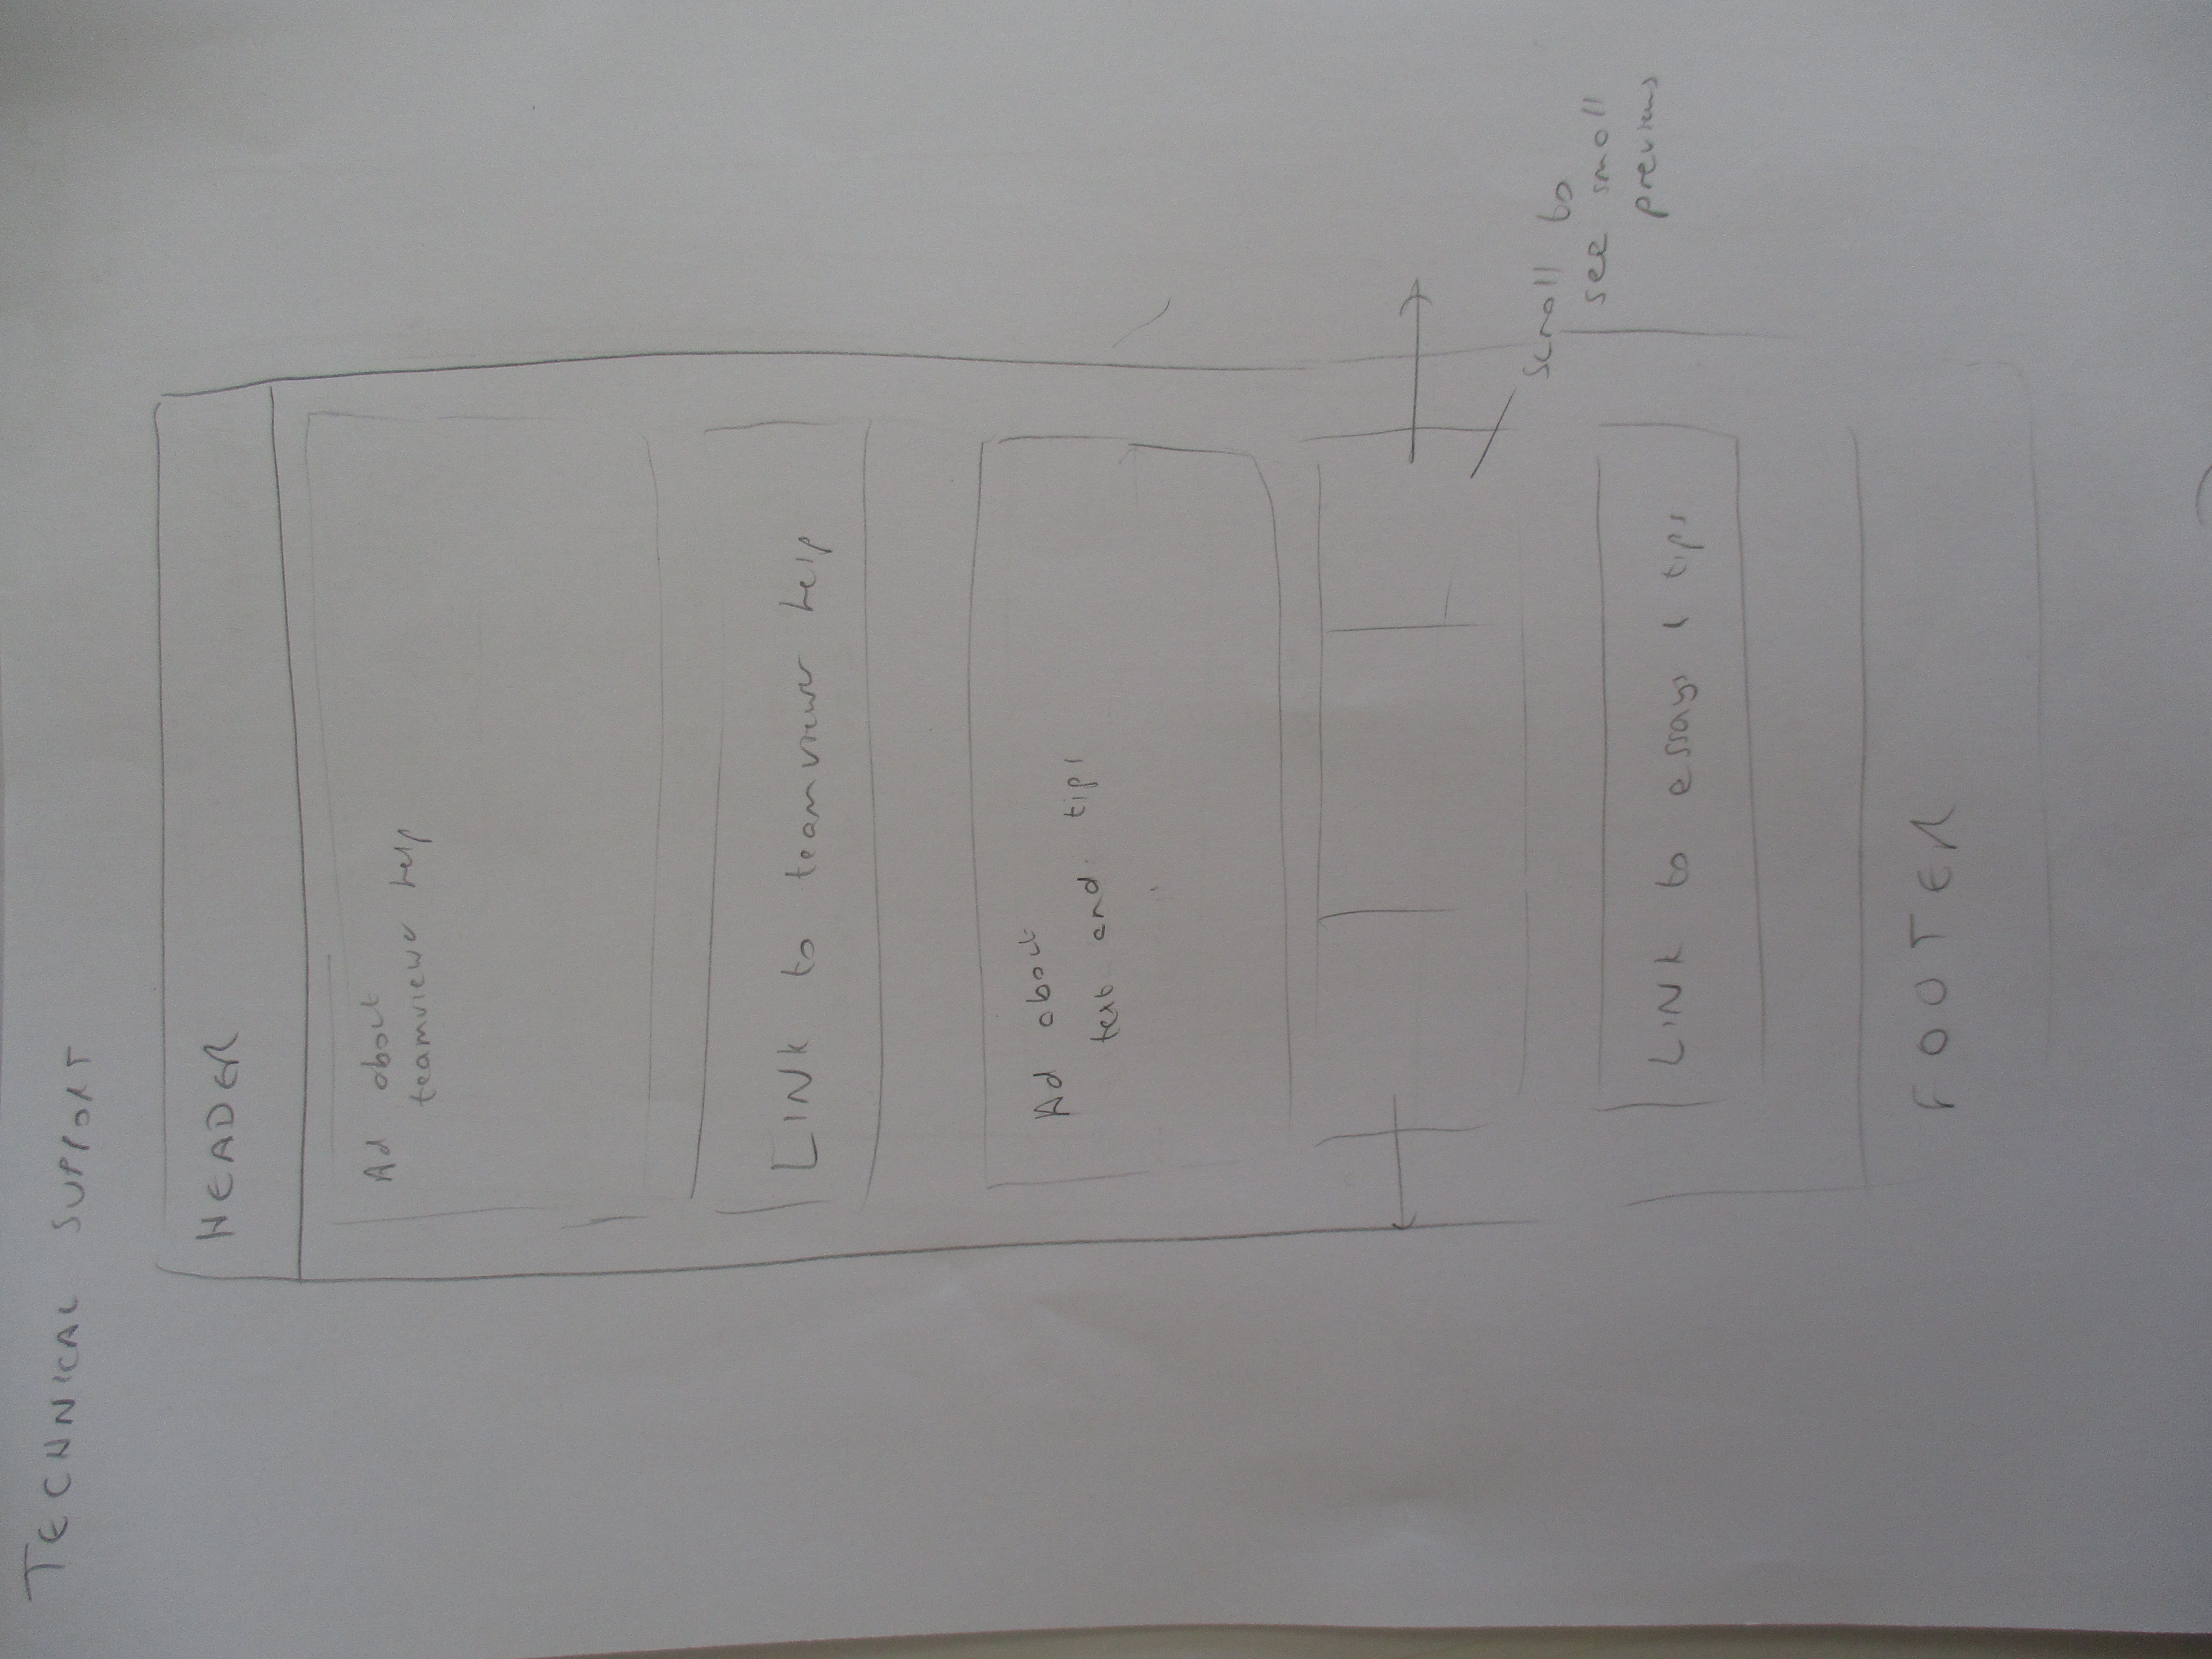 TECHNICAL SUPPORT
HEADER
Ad about
teamviewer help
LINK to teamviewer help
Ad about
text and tips
scroll to
see small
previews
LINK to essays & tips
FOOTER